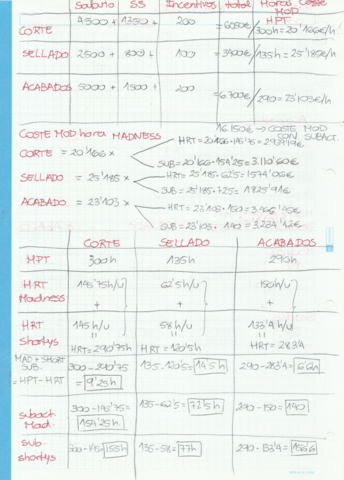 Salario SS Incentivos total Horas Coste
HPT MOD
CORTE 4500 + 1350 + 200 = 6050€/300h = 20'166€/h
SELLADO 2500 + 800 + 100 = 3400€/135h = 25'185€/h
ACABADOS 5000 + 1500 + 200 = 6.700€/290 = 23'103€/h
16.150€ → COSTE MOD CON SUBACT.
COSTE MOD hora MADNESS
HRT = 20'166 · 145'75 = 2939'19€
CORTE = 20'166 x
SUB = 20'166 · 154'25 = 3.110'60€
HRT = 25'185 · 62'5 = 1574'06€
SELLADO = 25'185 x
SUB = 25'185 · 72'5 = 1825'91€
HRT = 23'103 · 150 = 3.465'45€
ACABADO = 23'103 x
SUB = 23'103 · 140 = 3.234'42€
CORTE SELLADO ACABADOS
HPT 300h 135h 290h
HRT Madness 145'75h/u 62'5h/u 150h/u
+ + +
HRT Shortys 145 h/u 58 h/u 133'4 h/u
HRT = 290'75h HRT = 120'5h HRT = 283'4
MAD + SHORT SUB. = HPT - HRT 300 - 290'75 = 9'25h 135 - 120'5 = 14'5h 290 - 283'4 = 6'6h
subact. Mad. 300 - 145'75 = 154'25h 135 - 62'5 = 72'5h 290 - 150 = 140
sub. shortys 300 - 145 = 155h 135 - 58 = 77h 290 - 133'4 = 156'6